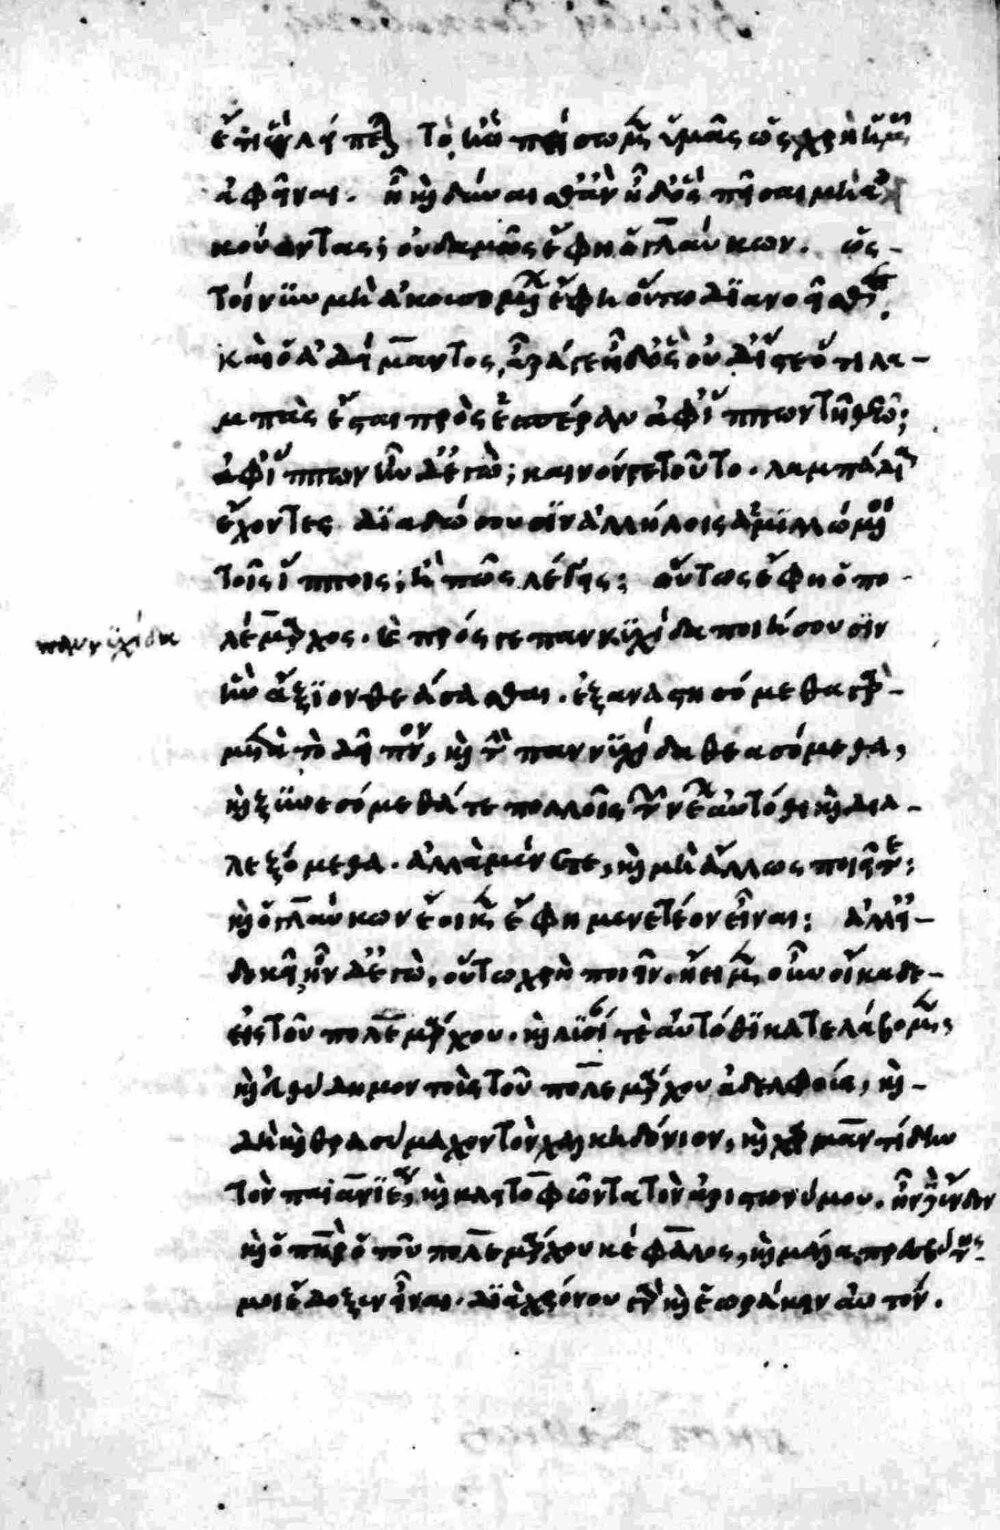 ἔτι ἓν λείπεται τὸ ἢν πείσωμεν ὑμᾶς ὡς χρὴ ἡμᾶς
ἀφεῖναι. ἦ καὶ δύναισθ' ἂν ἦ δ' ὃς πεῖσαι μὴ ἀ
κούοντας; οὐδαμῶς ἔφη ὁ γλαύκων. ὡς
τοίνυν μὴ ἀκουσομένων ἔφη οὕτω διανοεῖσθε.
καὶ ὁ ἀδείμαντος, ἆρά γε ἦ δ' ὃς οὐδ' ἴστε ὅτι λα-
μπὰς ἔσται πρὸς ἑσπέραν ἀφ' ἵππων τῇ θεῷ;
ἀφ' ἵππων ἦν δ' ἐγώ; καινόν γε τοῦτο. λαμπάδια
ἔχοντες διαδώσουσιν ἀλλήλοις ἁμιλλώμενοι
τοῖς ἵπποις; ἢ πῶς λέγεις; οὕτως ἔφη ὁ πο-
λέμαρχος. καὶ πρός γε παννυχίδα ποιήσουσιν
παννυχίδα
ἣν ἄξιον θεάσασθαι. ἐξαναστησόμεθα γὰρ
μετὰ τὸ δεῖπνον, καὶ τὴν παννυχίδα θεασόμεθα,
καὶ ξυνεσόμεθά τε πολλοῖς τῶν νέων αὐτόθι καὶ δια-
λεξόμεθα. ἀλλὰ μένετε, καὶ μὴ ἄλλως ποιεῖτε:
καὶ ὁ γλαύκων ἔοικεν ἔφη μενετέον εἶναι: ἀλλ' εἰ
δοκεῖ ἦν δ' ἐγὼ, οὕτω χρὴ ποιεῖν. ᾖμεν οὖν οἴκαδε
εἰς τοῦ πολεμάρχου. καὶ λυσίαν τε αὐτόθι κατελάβομεν,
καὶ εὐθύδημον τοὺς τοῦ πολεμάρχου ἀδελφούς, καὶ
δὴ καὶ θρασύμαχον τὸν χαλκηδόνιον, καὶ χαρμαντίδην
τὸν παιανιέα, καὶ κλειτοφῶντα τὸν ἀριστωνύμου. ἦν δ' ἔνδον
καὶ ὁ πατὴρ ὁ τοῦ πολεμάρχου κέφαλος, καὶ μάλα πρεσβύτης
μοι ἔδοξεν εἶναι. διὰ χρόνου γὰρ καὶ ἑωράκειν αὐτόν.